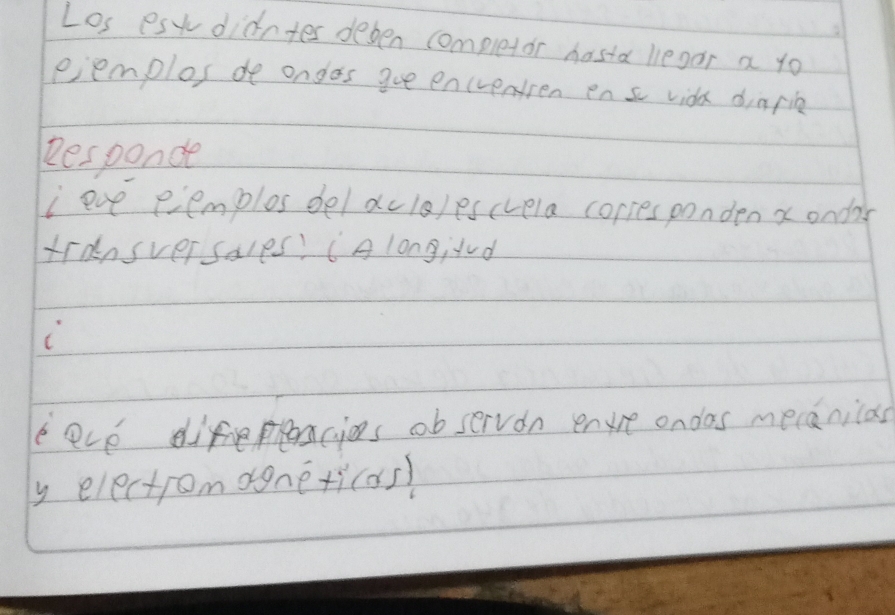 Los estudidntes deben completar hasta llegar a 10
ejemplos de ondas que encuentren en su vida diaria
Responde
¿ Qué ejemplos del aula/escuela corresponden a ondas
transversales? ¿ A longitud
¿
¿ Qué diferencias observan entre ondas mecánicas
y electromagnéticas?